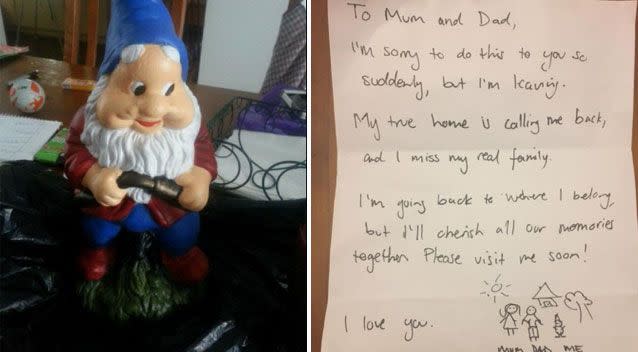 To Mum and Dad,
I'm sorry to do this to you so
suddenly, but I'm leaving.
My true home is calling me back,
and I miss my real family.
I'm going back to where I belong,
but I'll cherish all our memories
together. Please visit me soon!
I love you.
MUM DAD ME